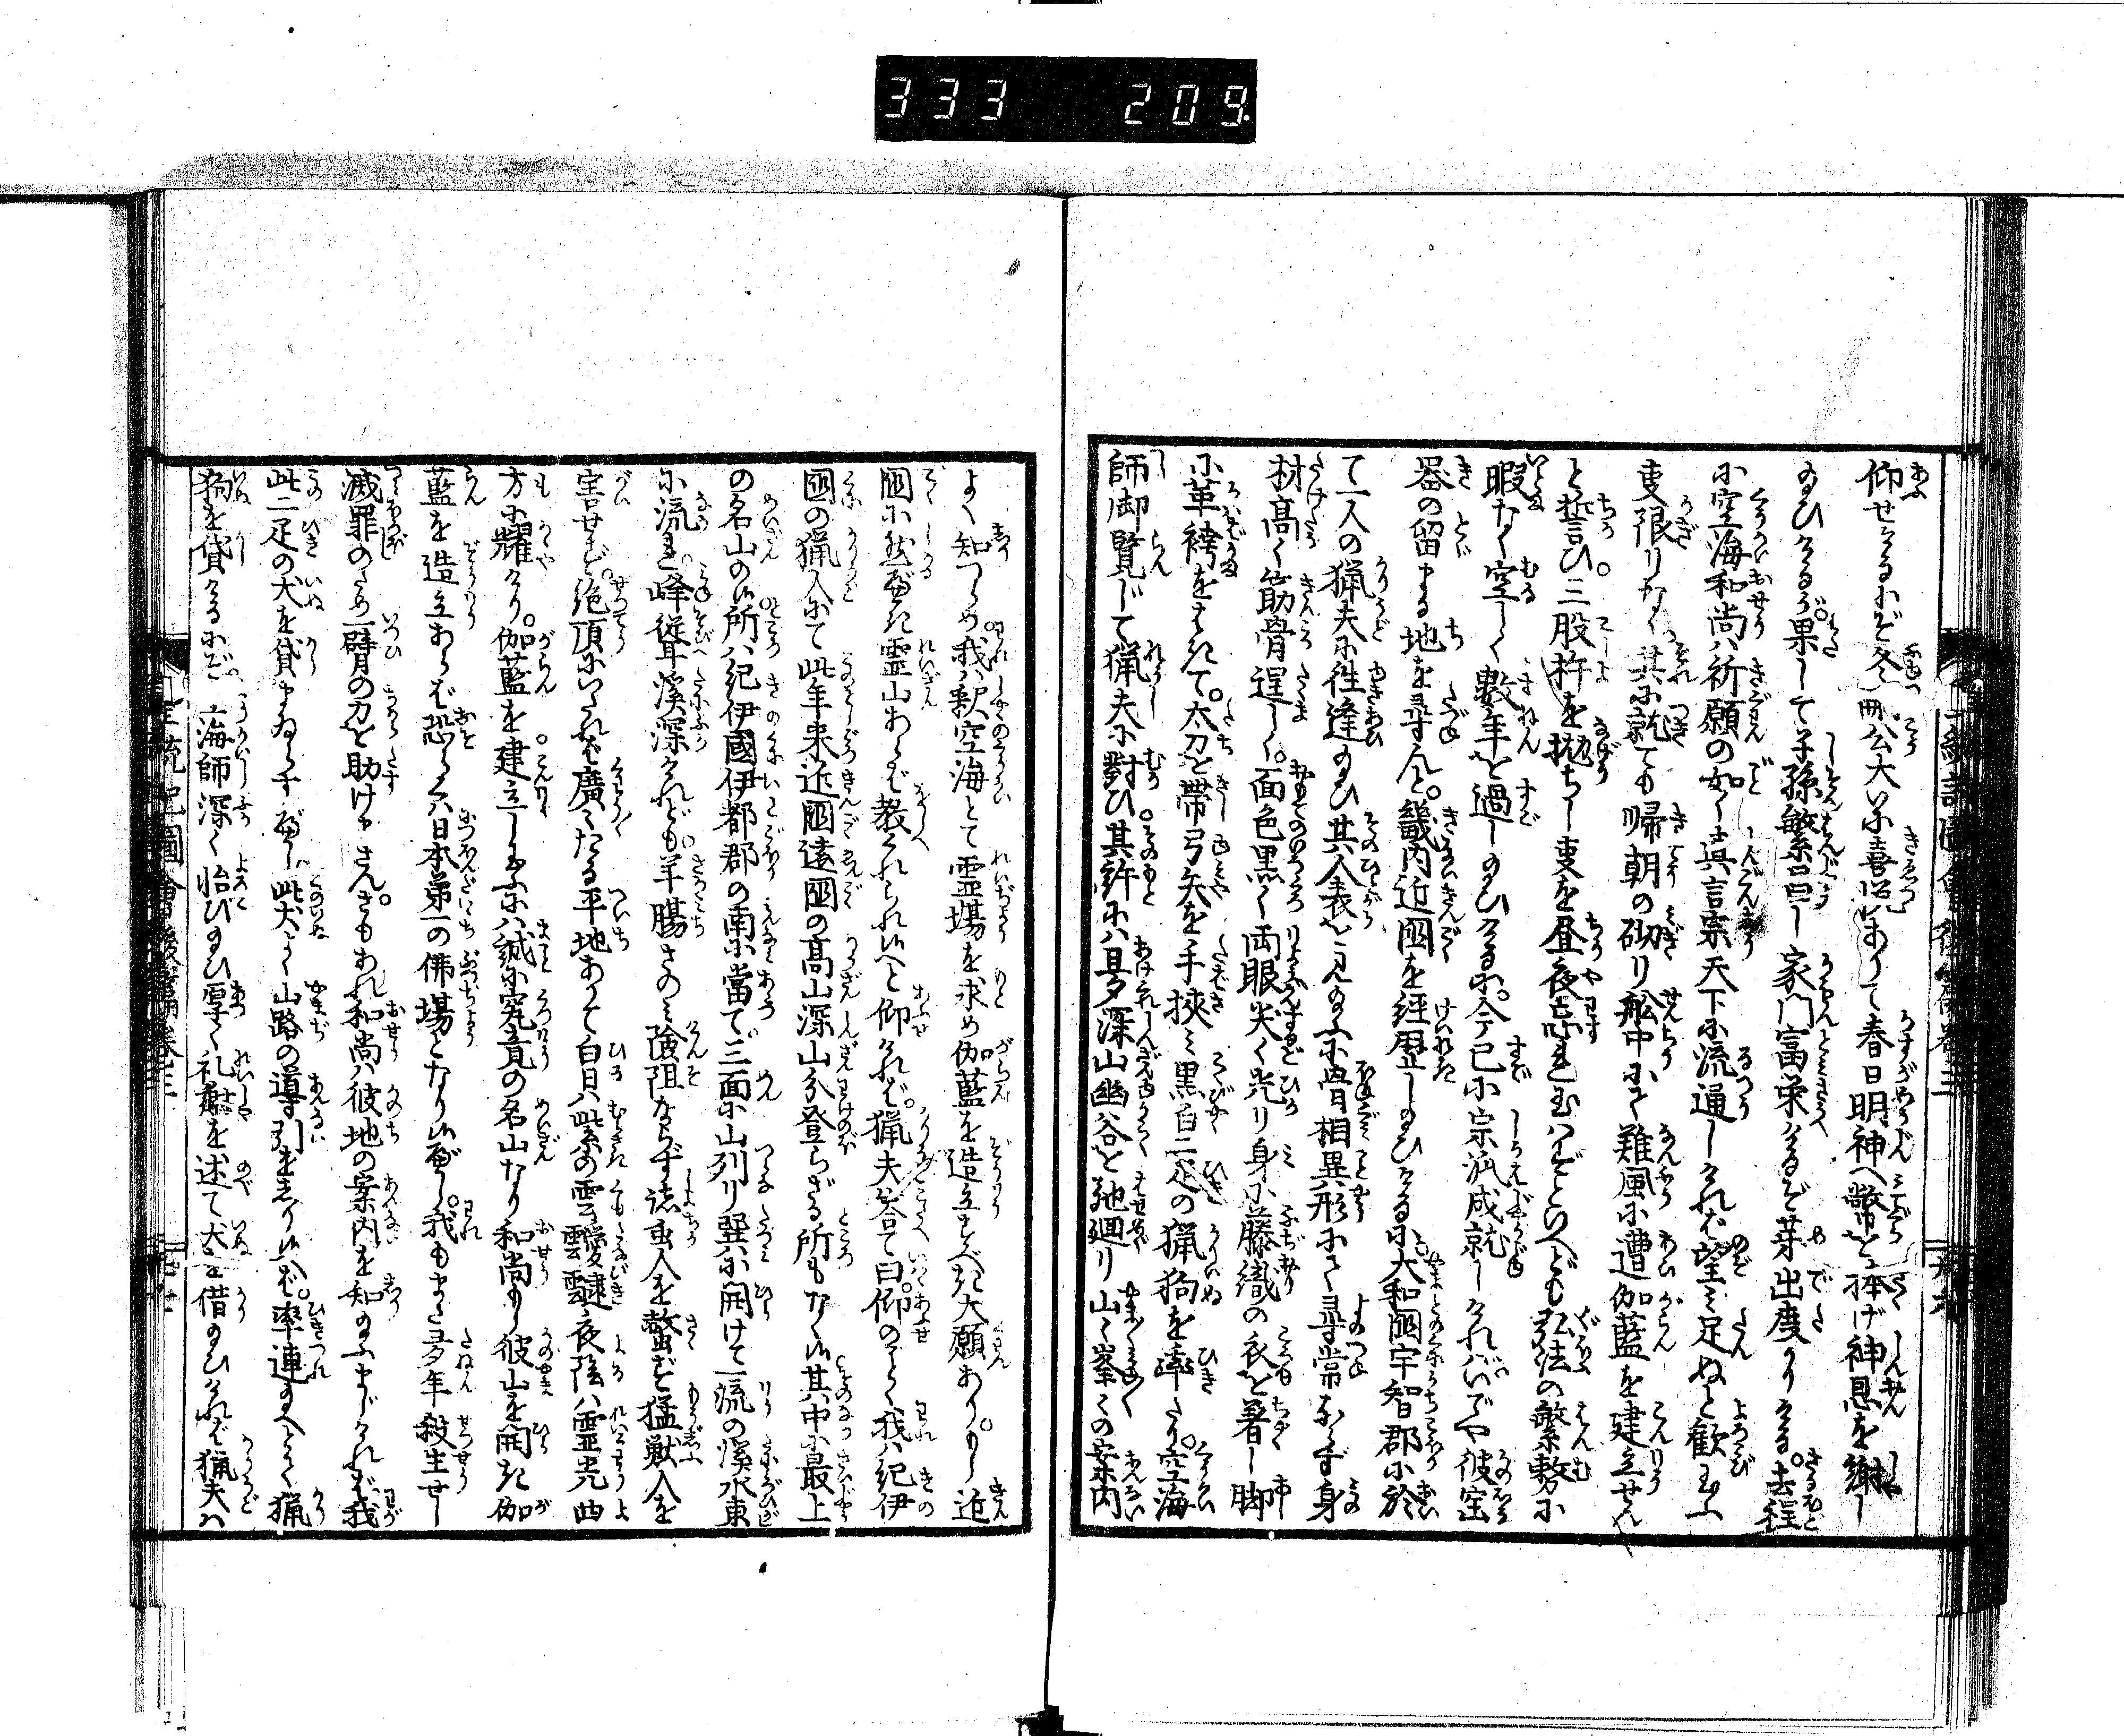 333 209.
仰せけるにぞ冬嗣公大いに喜悦あつて春日明神へ幣を捧げ神恩を謝し
給ひけるが。果して子孫繁昌し家門富栄けるぞ芽出度かりける。去程
に空海和尚ハ祈願の如く真言宗天下に流通しけれバ望ミ足ぬと歓び玉ふ
事限りなく其に就ても帰朝の砌り舩中にて難風に遭伽藍を建立せん
と誓ひ。三股杵を抛ちし事を昼夜忘れ玉ハずといへども弘法の繁務に
暇なく空しく数年を過し給ひけるが。今已に宗派成就しけれバいでや彼宝
器の留まる地を尋んと。畿内近国を経歴し給ひけるに。大和国宇智郡に於
て一人の猟夫に往逢給ひ其人表を見給ふに骨相異形にて尋常ならず身
材高く筋骨逞しく。面色黒く両眼尖く光り身に藤織の衣を着し脚
に革袴をはきて。太刀を帯弓矢を手挟ミ黒白二疋の猟狗を率たり。空海
師御覧じて猟夫に対ひ其許にハ旦夕深山幽谷を馳廻り山々峯々の案内
よく知つらめ我ハ釈空海とて霊場を求め伽藍を造立すべき大願あり。もし近
国に然べき霊山あらバ教くれられ候へと仰けれバ。猟夫答て曰。仰のごとく我ハ紀伊
国の猟人にて此年来近国遠国の高山深山分登らざる所もなく候其中に最上
の名山の候所ハ紀伊國伊都郡の南に當て。三面に山列り巽に開けて一流の渓水東
に流れ。峰聳渓深けれども。羊腸さのミ険阻ならず諸虫人を螫ず猛獣人を
害せず。絶頂にいたれバ廣々たる平地あつて白日ハ紫の雲靉靆夜陰ハ霊光四
方に耀けり。伽藍を建立し給ふにハ誠に究竟の名山なり和尚もし彼山を開き伽
藍を造立あらバ恐らくハ日本第一の佛場となり候べし。我もまた多年殺生せし
滅罪のため一臂の力を助け申さん。さもあれ和尚ハ彼地の案内を知給ふまじけれバ。我
此二疋の犬を貸まゐらすべし。此犬よく山路の導引を走り候へバ。率連給へとて猟
狗を貸けるにぞ。空海師深く怡び給ひ厚く礼辭を述て犬を借給ひけれバ猟夫ハ